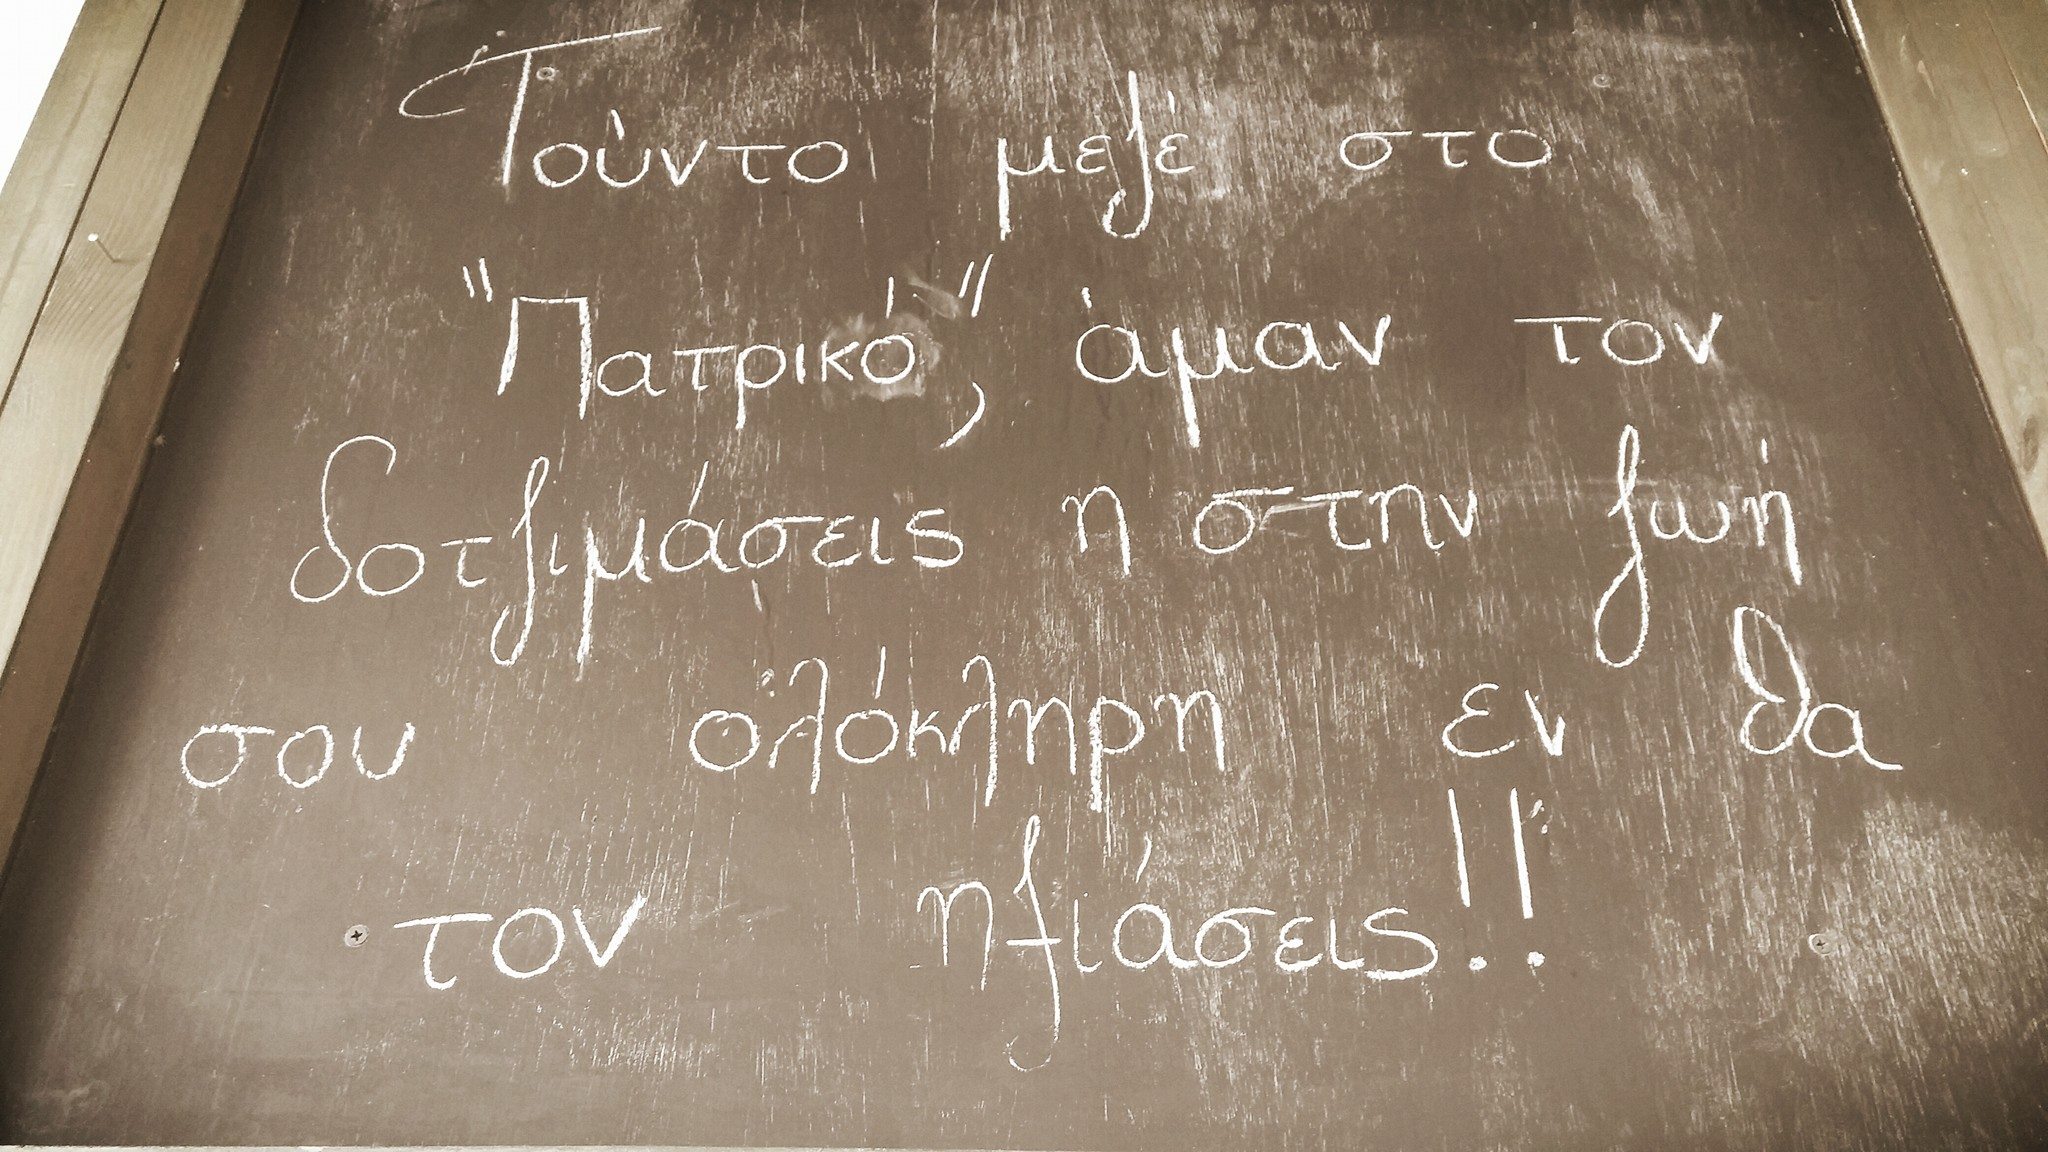 Τούντο μεζέ στο
"Πατρικό", άμαν τον
δοτζιμάσεις η στην ζωή
σου ολόκληρη εν θα
τον ηζιάσεις!!